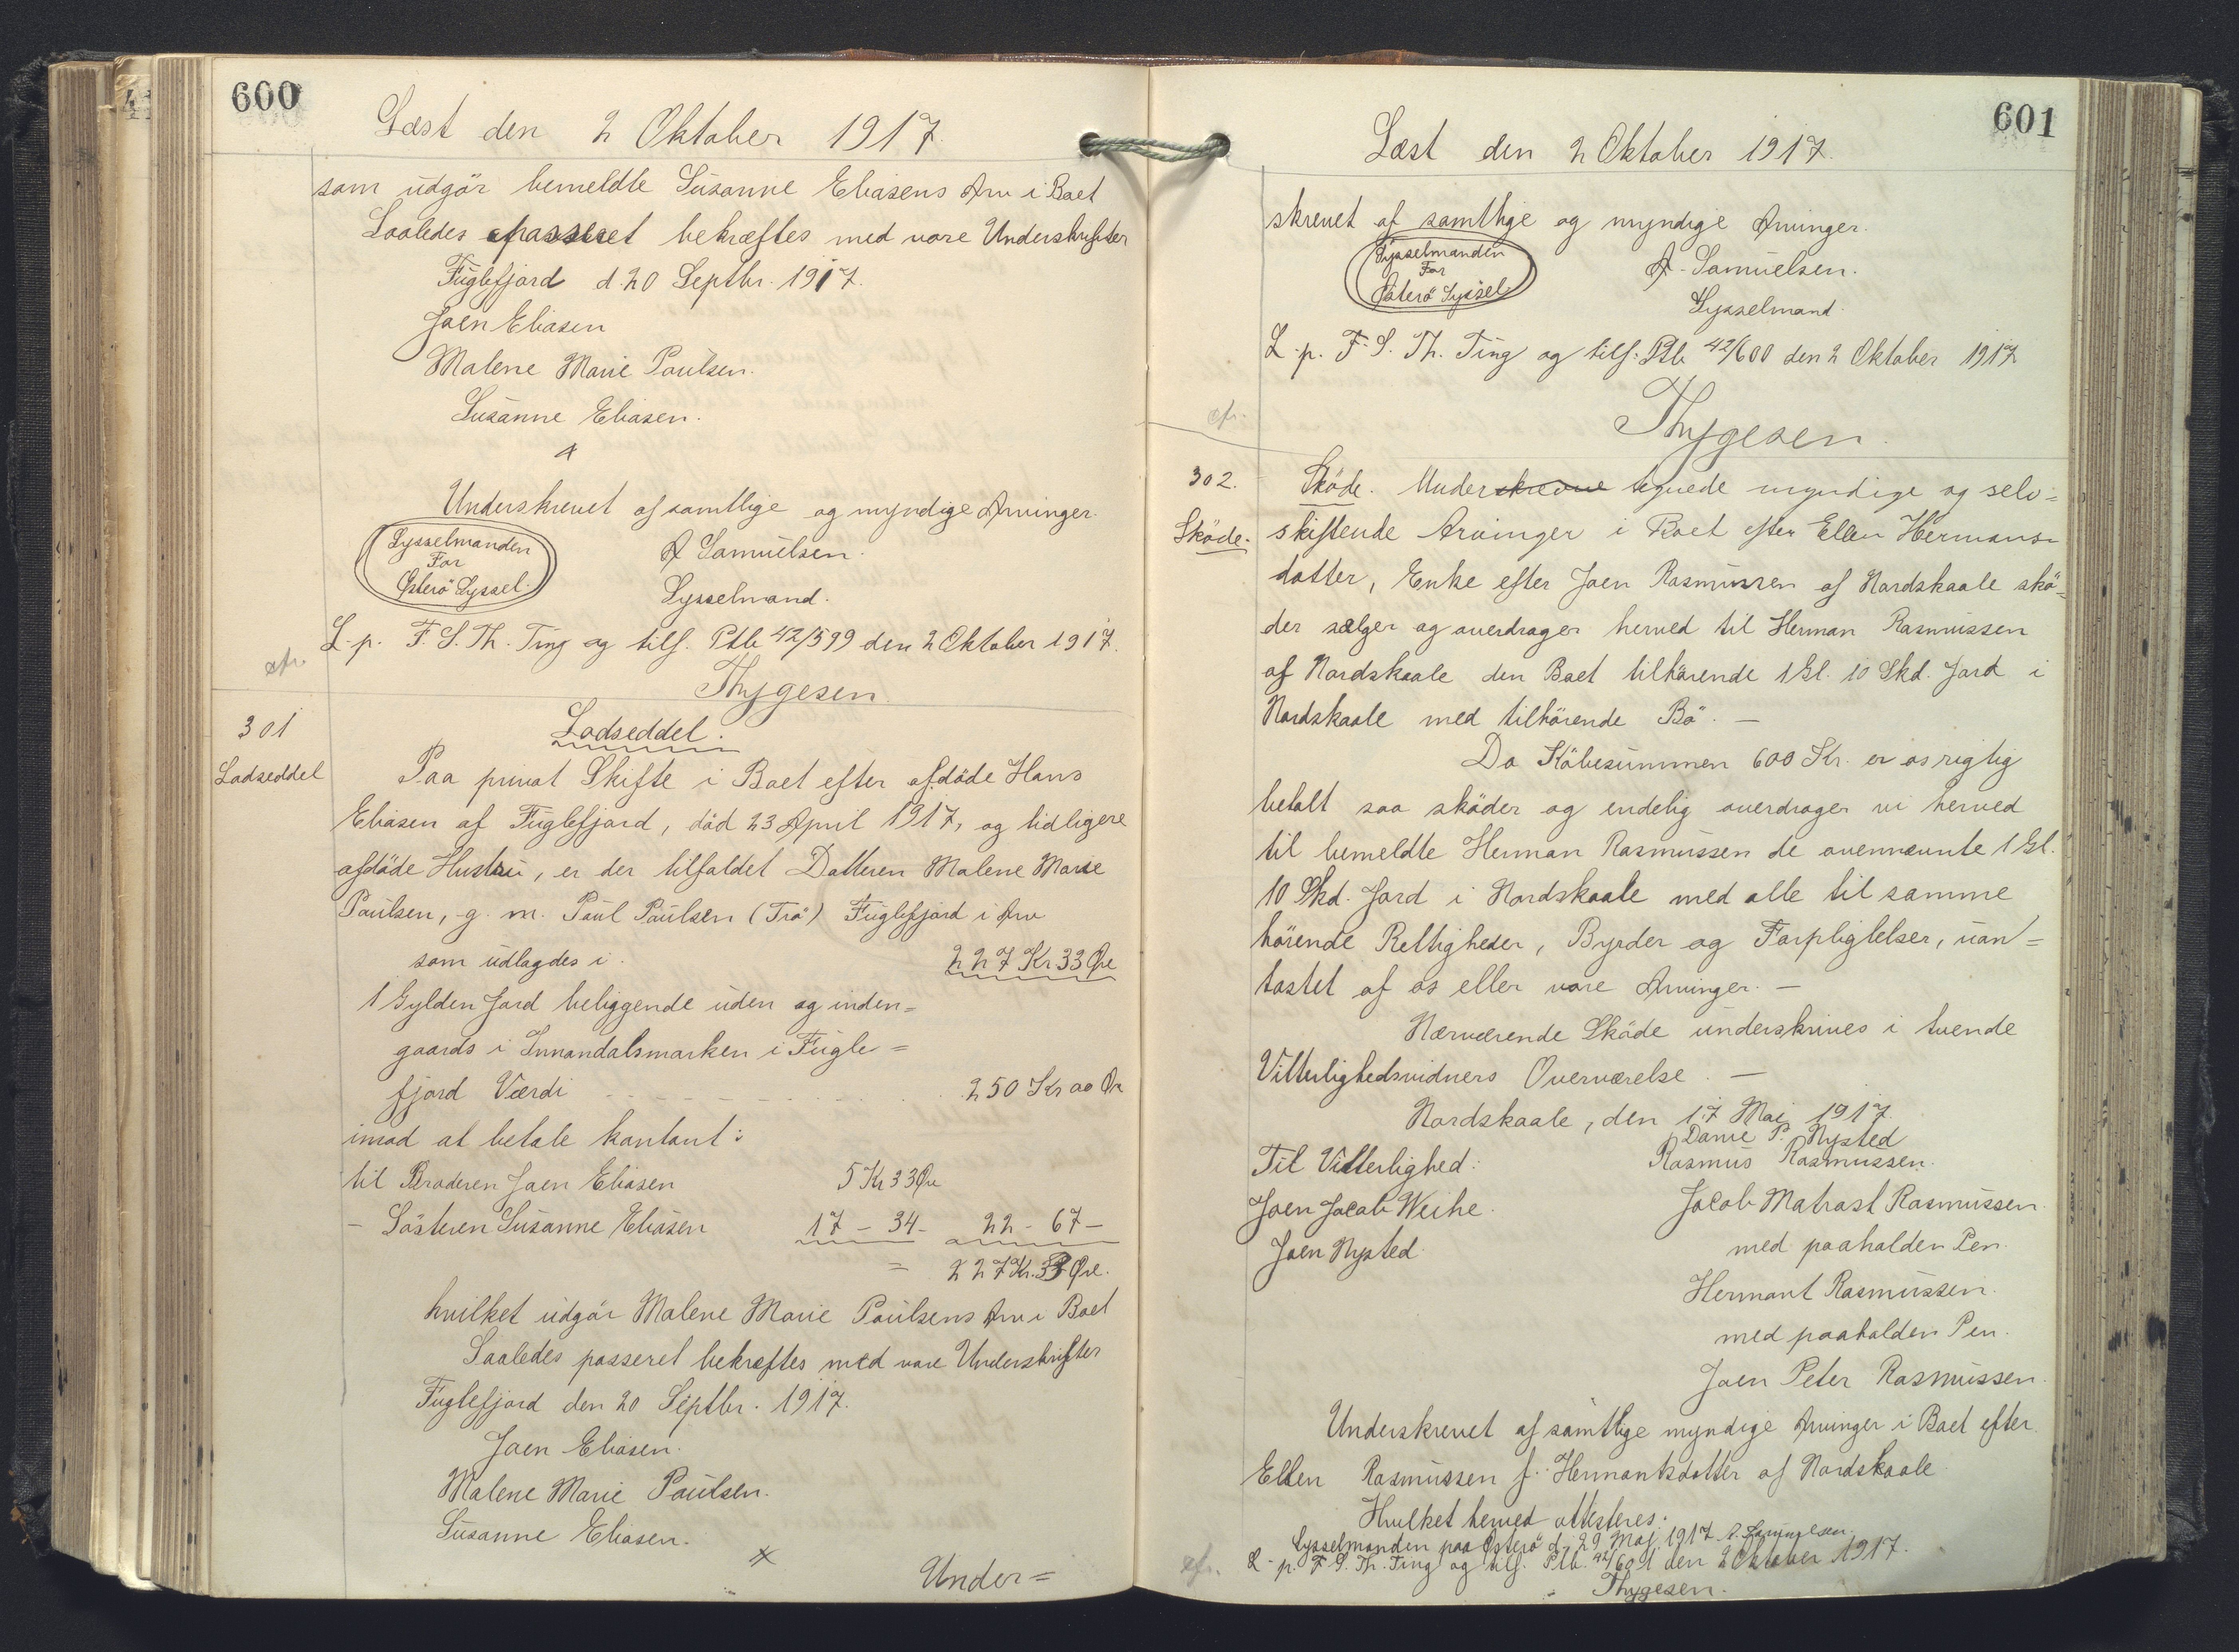 600
Læst den 2 Oktober 1917.
som udgör bemeldte Susanne Eliasens Arv i Boet
Saaledes passeret bekræftes med vore Underskrifter
Fuglefjord d. 20 Septbr. 1917.
Joen Eliasen
Malene Marie Poulsen.
Susanne Eliasen.
Underskrevet af samtlige og myndige Arvinger.
Sysselmanden
For
Østerö Syssel.
A Samuelsen.
Sysselmand.
L. p. F. S. Th. Ting og tilf. Ptb 42/599 den 2 Oktober 1917.
cfr.
Thygesen
301
Lodseddel
Lodseddel.
Paa privat Skifte i Boet efter afdöde Hans
Eliasen af Fuglefjord, död 23 April 1917, og tidligere
afdöde Hustru, er der tilfaldet Datteren Malene Marie
Poulsen, g. m. Poul Poulsen (Trö) Fuglefjord i Arv
som udlagdes i. 227 Kr 33 Øre
1 Gylden Jord beliggende uden og inden=
gaards i Innandalsmarken i Fugle=
fjord Værdi 250 Kr 00 Ør
imod at betale kontant:
til Broderen Joen Eliasen 5 Kr 33 Øre
- Sösteren Susanne Eliasen 17 - 34 - 22 - 67 -
= 227 Kr. 33 Øre.
hvilket udgör Malene Marie Poulsens Arv i Boet
Saaledes passeret bekræftes med vore Underskrifter
Fuglefjord den 20 Septbr. 1917.
Joen Eliasen.
Malene Marie Poulsen.
Susanne Eliasen.
Under=
601
Læst den 2 Oktober 1917.
skrevet af samtlige og myndige Arvinger.
Sysselmanden
For
Østerö Syssel
A. Samuelsen.
Sysselmand.
L. p. F. S. Th. Ting og tilf. Ptb 42/600 den 2 Oktober 1917
cfr.
Thygesen.
302.
Sköde.
Sköde. Underskrevne tegnede myndige og selv=
skiftende Arvinger i Boet efter Ellen Hermans=
datter, Enke efter Joen Rasmussen af Nordskaale skö=
der sælger og overdrager herved til Herman Rasmussen
af Nordskaale den Boet tilhörende 1 Gl. 10 Skd. Jord i
Nordskaale med tilhörende Bö. —
Da Köbesummen 600 Kr. er os rigtig
betalt saa sköder og endelig overdrager vi herved
til bemeldte Herman Rasmussen de ovennævnte 1 Gl.
10 Skd. Jord i Nordskaale med alle til samme
hörende Rettigheder, Byrder og Forpligtelser, uan=
tastet af os eller vore Arvinger. —
Nærværende Sköde underskrives i tvende
Vitterlighedsvidners Overværelse —
Nordskaale, den 17 Maj 1917.
Danie P. Nysted
Til Vitterlighed:
Rasmus Rasmussen.
Joen Jacob Weihe.
Jacob Matrast Rasmussen.
Joen Nysted.
med paaholden Pen.
Hermant Rasmussen.
med paaholden Pen.
Joen Peter Rasmussen.
Underskrevet af samtlige myndige Arvinger i Boet efter
Ellen Rasmussen f. Hermantsdatter af Nordskaale.
Hvilket herved attesteres.
Sysselmanden paa Østerö d. 29 Maj 1917. A. Samuelsen.
cfr. L. p. F. S. Th. Ting og tilf. Ptb. 42/601 den 2 Oktober 1917.
Thygesen.